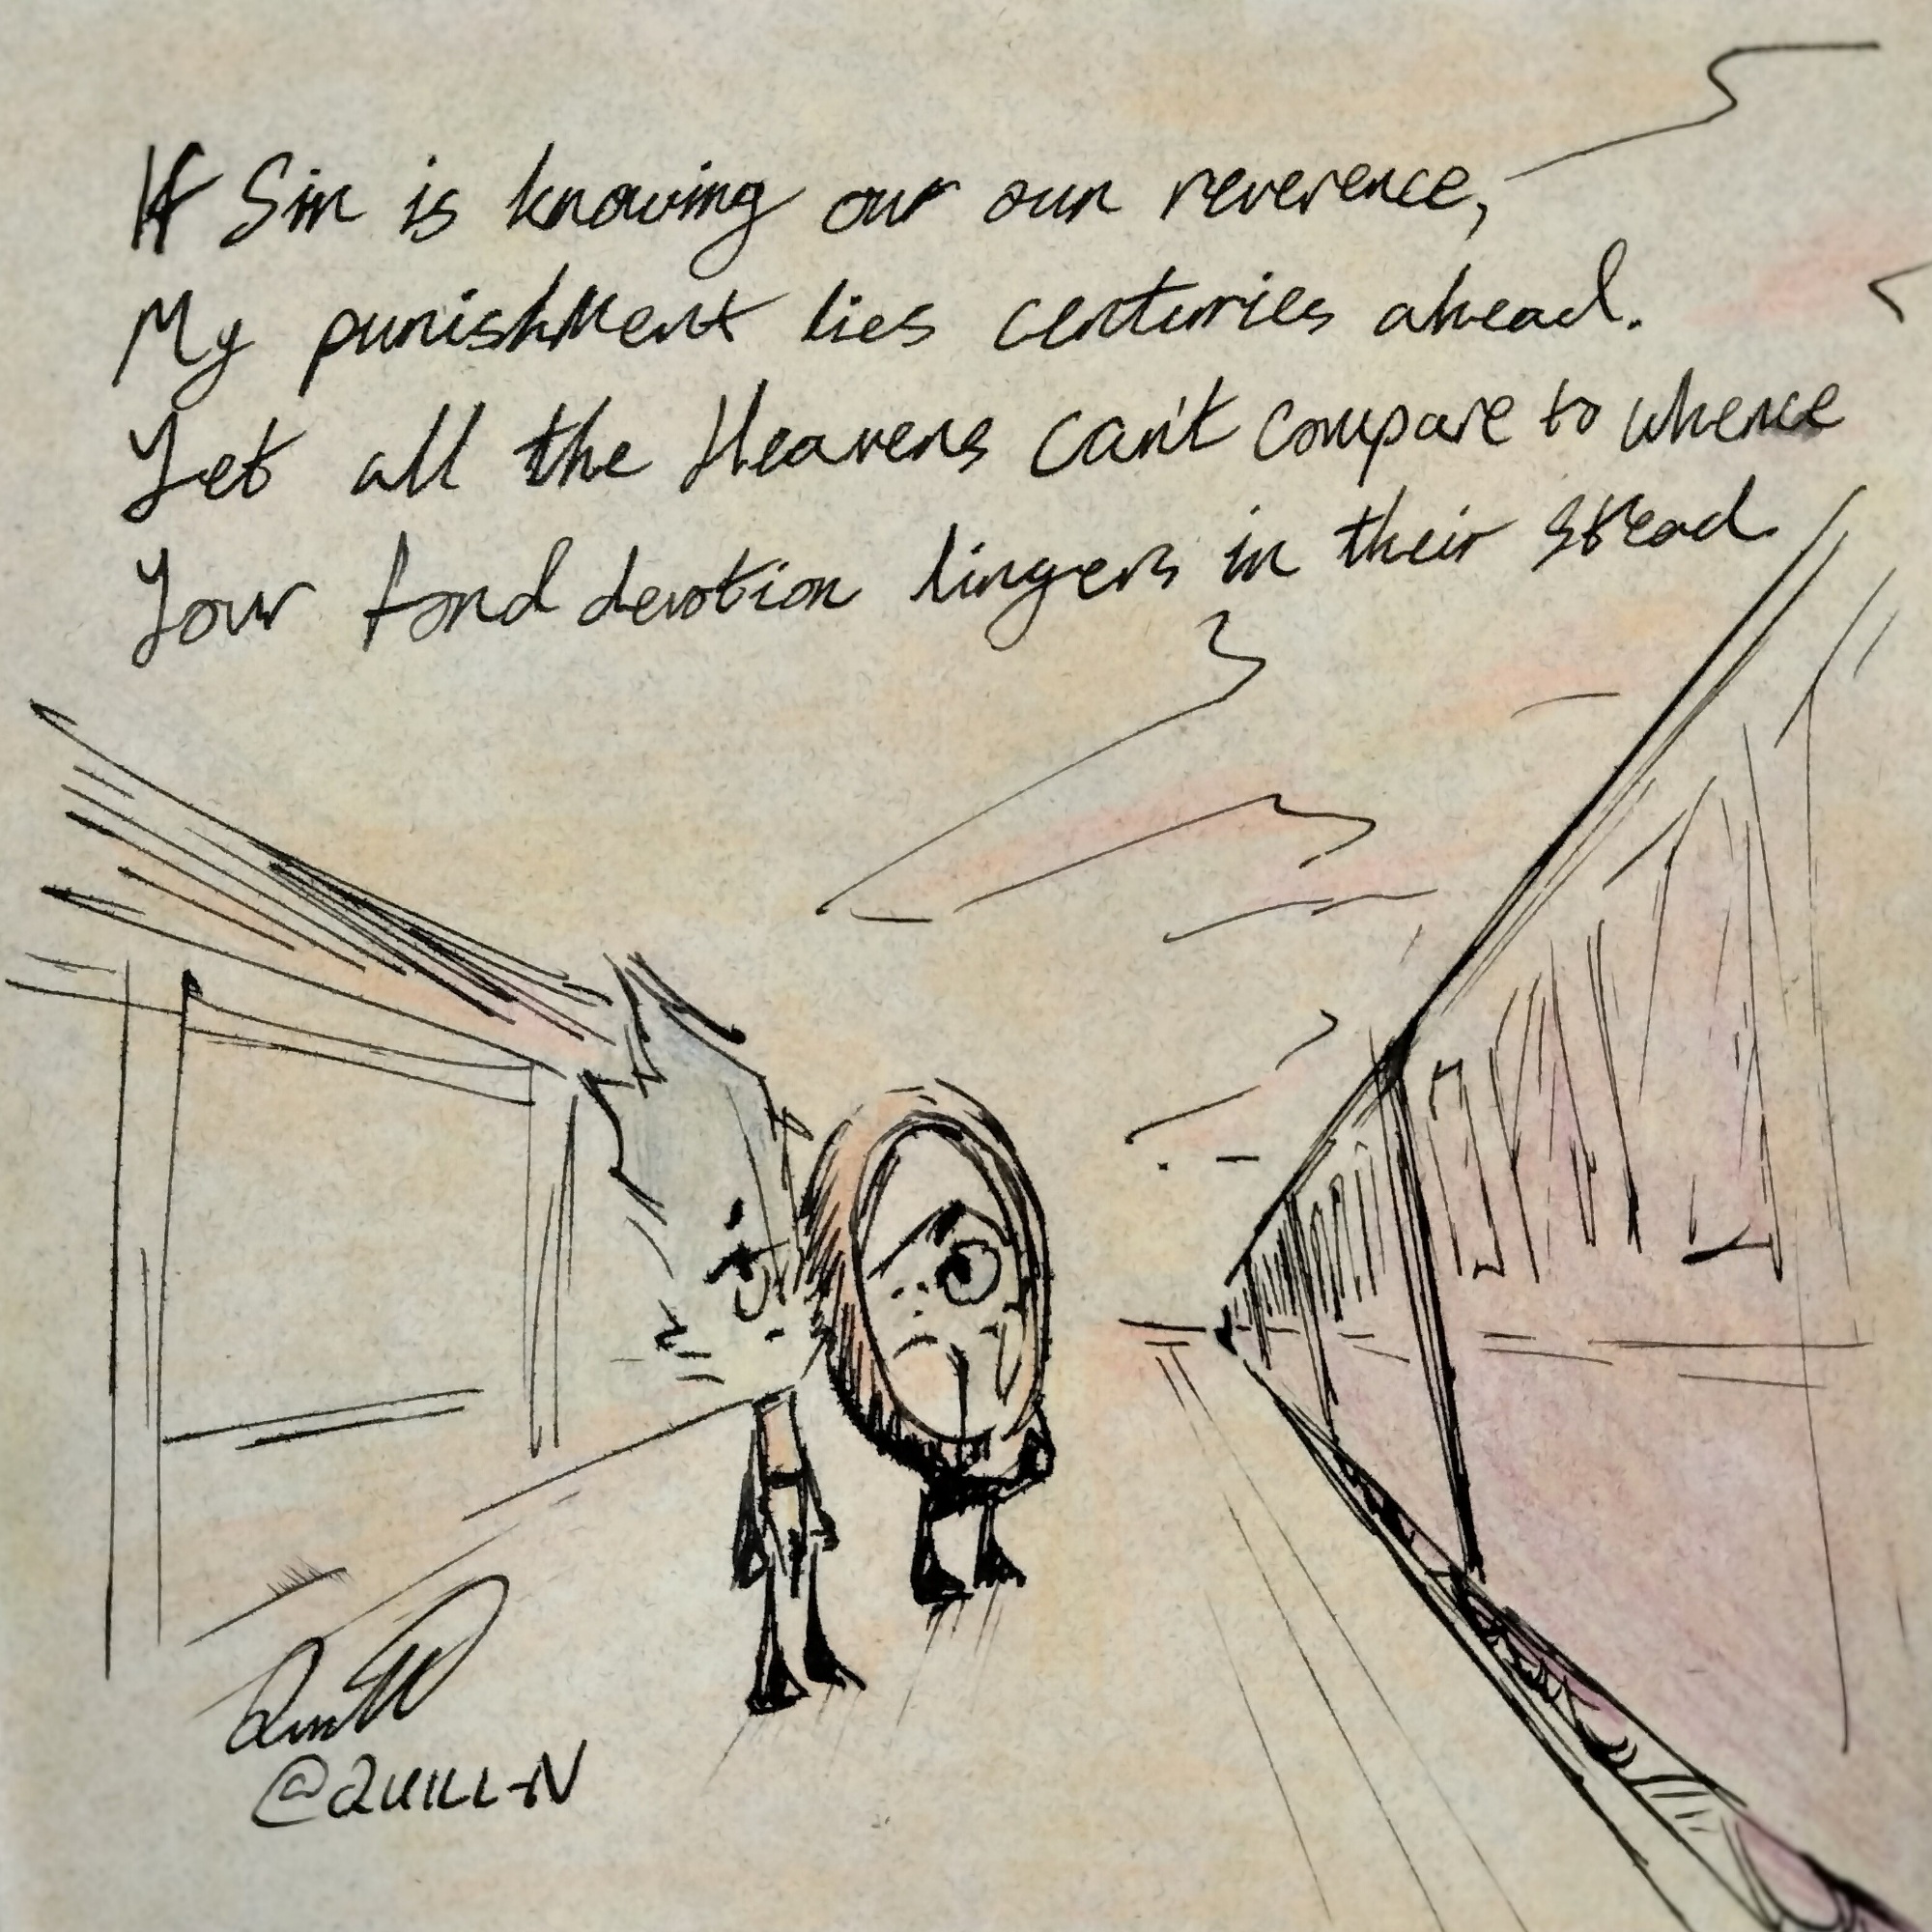 If Sin is knowing our own reverence,
My punishment lies centuries ahead.
Yet all the Heavens can't compare to whence
Your fond devotion lingers in their stead
@QUILL-N